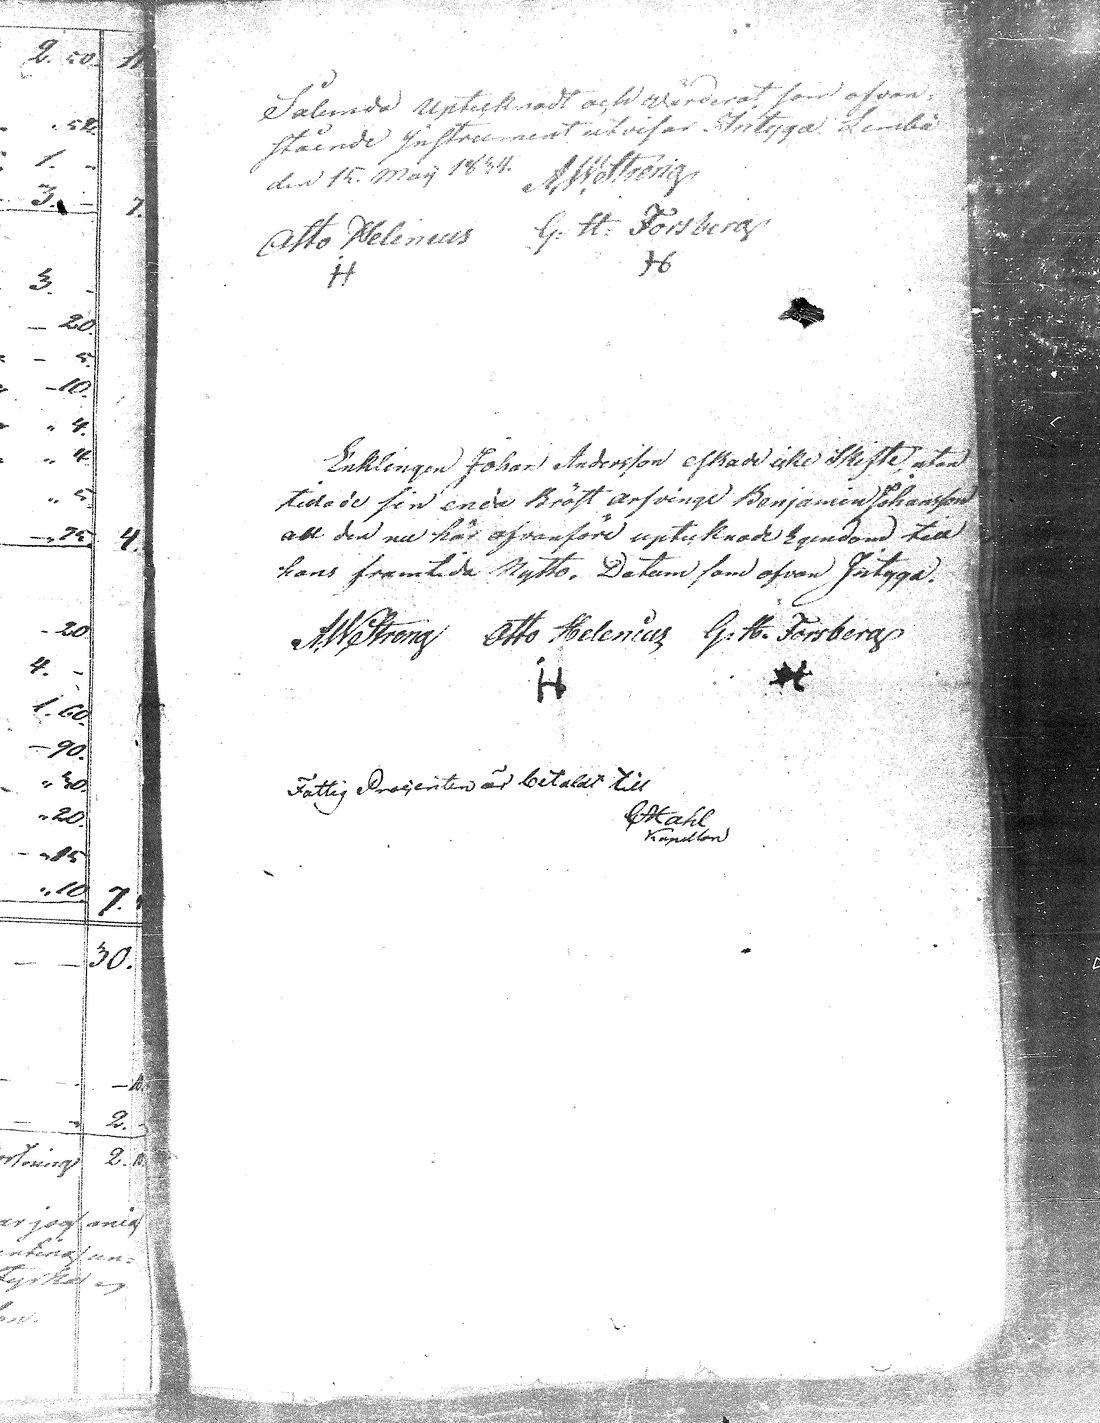 2. 50. 11
- 52.
1. -
3. - 7.
3. -
- 20.
- 5.
- 10.
" 4.
" 4.
" 5.
- 25. 4.
- 20.
4. -
1. 60.
- 90.
" 30.
" 20.
- " 15
" 10. 7.
- - 30.
- 10.
- " 2. -
2. 10.
ar jag
Tyrka
Sålunda Uptecknadt och värderat som ofvan-
stående Instrument utvisar. Intyga Lembå
den 15. Maij 1834. A.W. Streng
Otto Helenius G. H. Forsberg
H H
Enklingen Johan Andersson eskade icke Skifte utan
sin enda Bröst arfvinge Benjamin Johansson
all den nu här ofvanföre uptecknade Egendom till
hans framtida Nytto. Datum som ofvan Intyga.
A.W. Streng Otto Helenius G. H. Forsberg
H H
Fattig Procenten är betald till
G Stahl
Kapellan